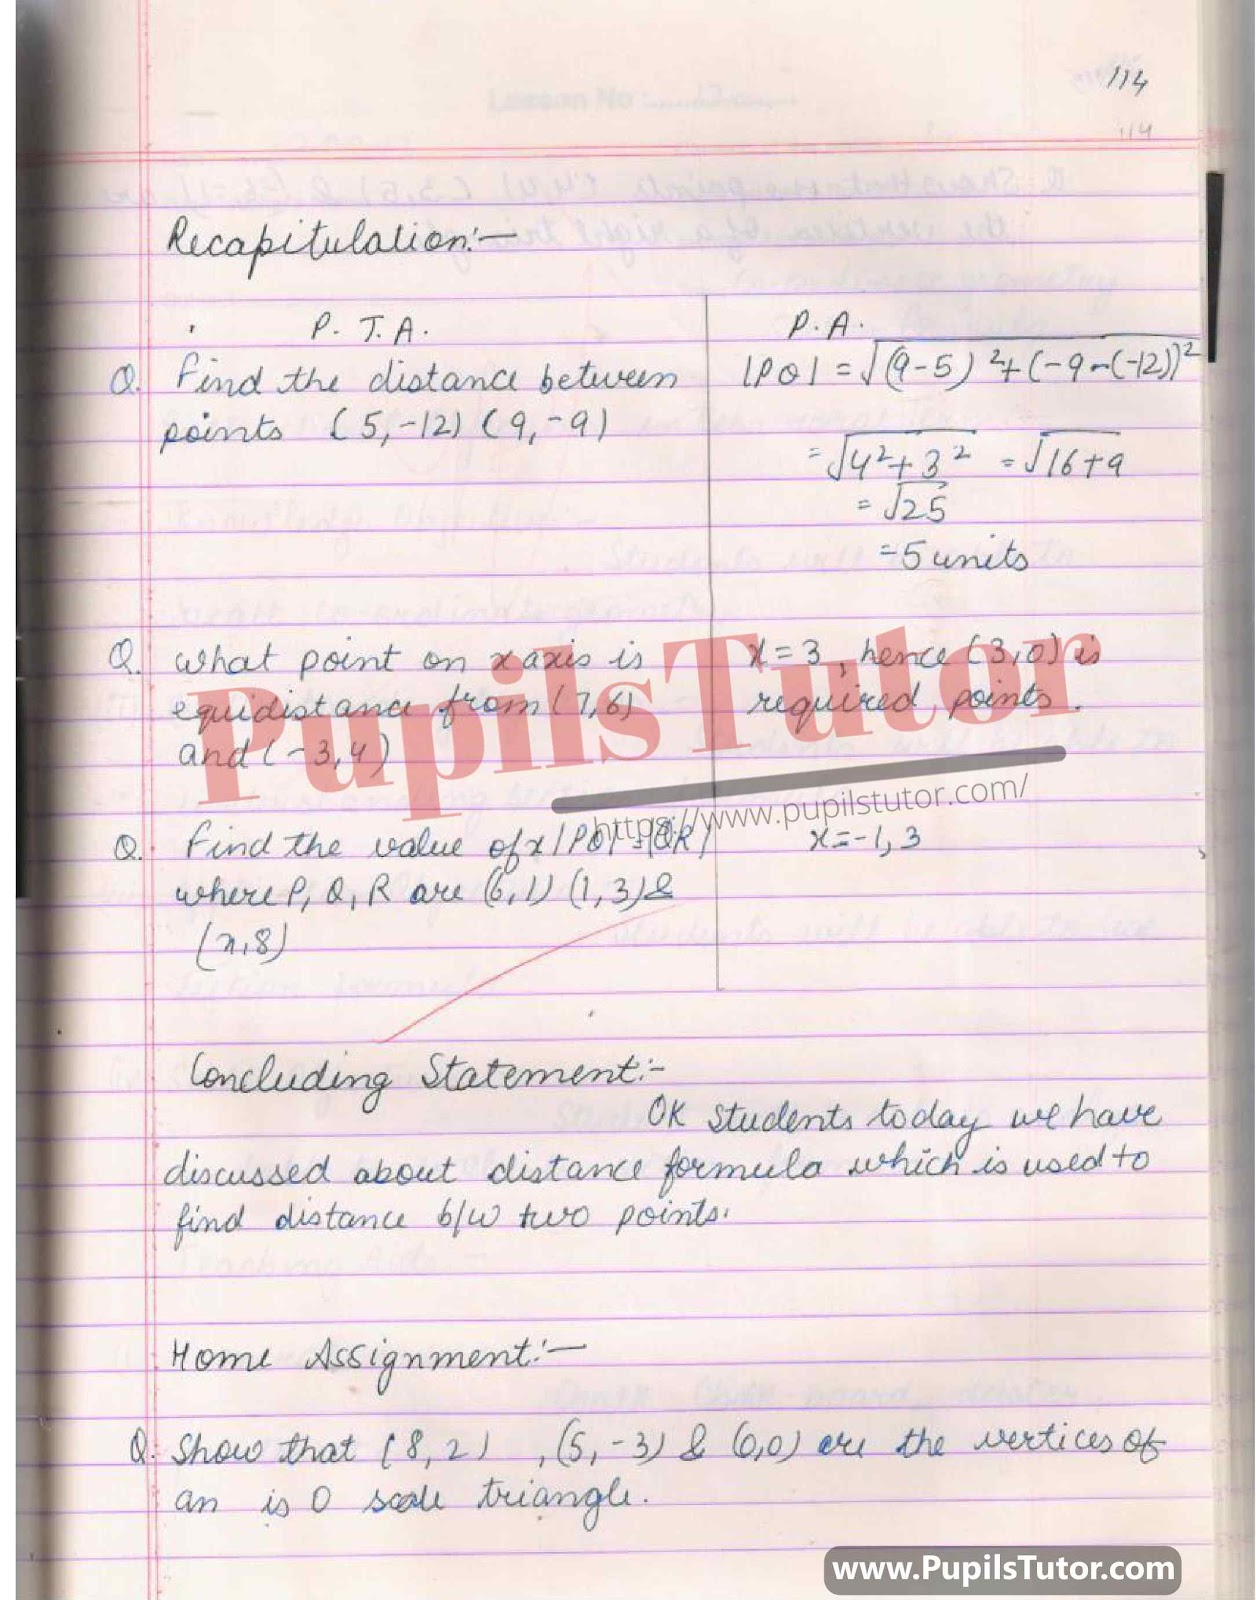 114
114
Recapitulation:-
P. T. A.
P. A.
Q. Find the distance between
points (5,-12) (9,-9)
|PQ| = √(9-5)²+(-9-(-12))²
= √4²+3² = √16+9
= √25
= 5 units
Q. what point on x axis is
equidistance from (7,6)
and (-3,4)
x = 3, hence (3,0) is
required points.
Q. Find the value of x |PQ| = |QR|
where P, Q, R are (6,1) (1,3) &
(x,8)
x = -1, 3
PupilsTutor
https://www.pupilstutor.com/
Concluding Statement:-
OK students today we have
discussed about distance formula which is used to
find distance b/w two points.
Home Assignment:-
Q. Show that (8,2) , (5,-3) & (0,0) are the vertices of
an is 0 scale triangle.
www.PupilsTutor.com